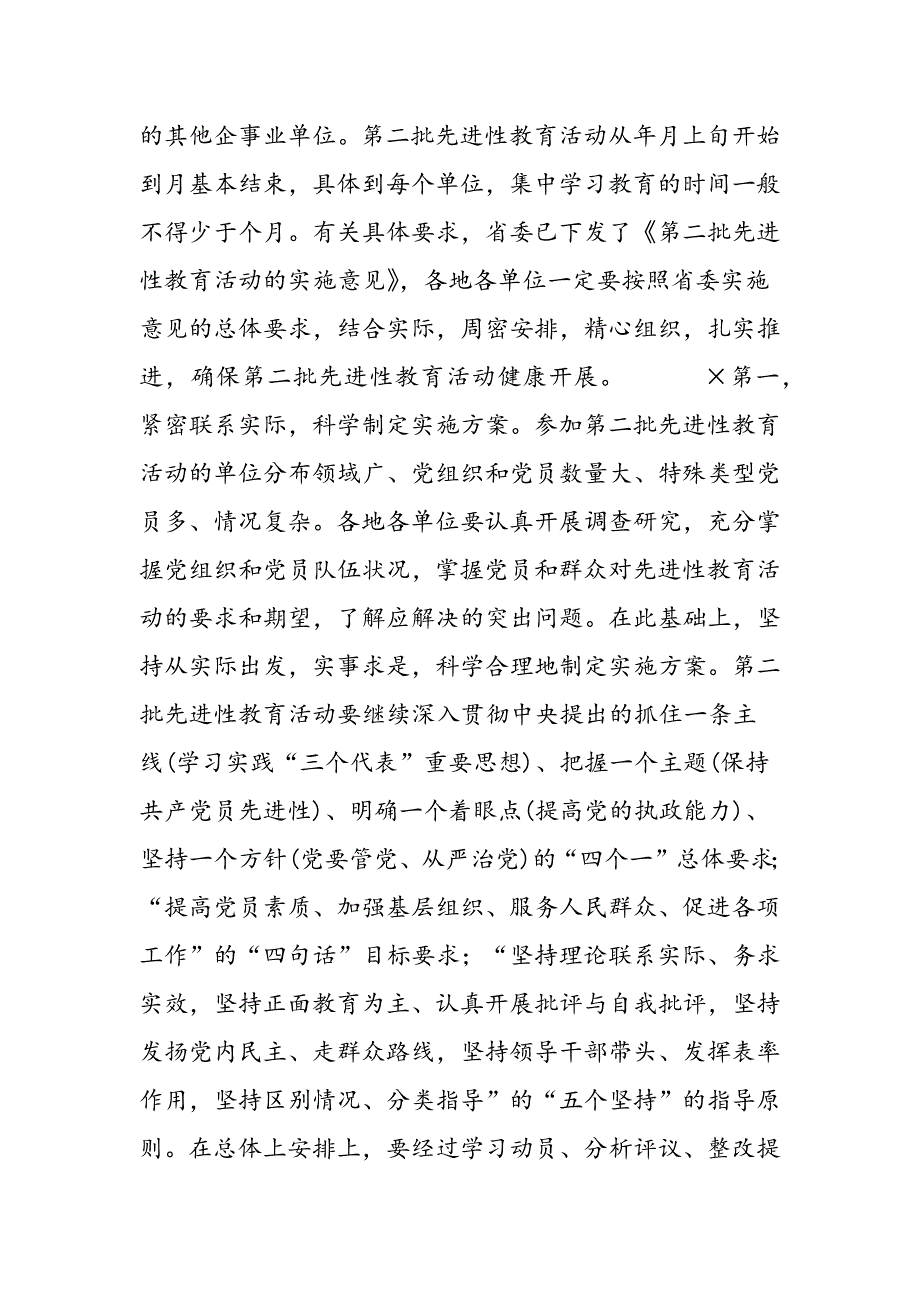 的其他企事业单位。第二批先进性教育活动从年月上旬开始
到月基本结束，具体到每个单位，集中学习教育的时间一般
不得少于个月。有关具体要求，省委已下发了《第二批先进
性教育活动的实施意见》，各地各单位一定要按照省委实施
意见的总体要求，结合实际，周密安排，精心组织，扎实推
进，确保第二批先进性教育活动健康开展。 ×第一，
紧密联系实际，科学制定实施方案。参加第二批先进性教育
活动的单位分布领域广、党组织和党员数量大、特殊类型党
员多、情况复杂。各地各单位要认真开展调查研究，充分掌
握党组织和党员队伍状况，掌握党员和群众对先进性教育活
动的要求和期望，了解应解决的突出问题。在此基础上，坚
持从实际出发，实事求是，科学合理地制定实施方案。第二
批先进性教育活动要继续深入贯彻中央提出的抓住一条主
线(学习实践“三个代表”重要思想)、把握一个主题(保持
共产党员先进性)、明确一个着眼点(提高党的执政能力)、
坚持一个方针(党要管党、从严治党)的“四个一”总体要求；
“提高党员素质、加强基层组织、服务人民群众、促进各项
工作”的“四句话”目标要求；“坚持理论联系实际、务求
实效，坚持正面教育为主、认真开展批评与自我批评，坚持
发扬党内民主、走群众路线，坚持领导干部带头、发挥表率
作用，坚持区别情况、分类指导”的“五个坚持”的指导原
则。在总体上安排上，要经过学习动员、分析评议、整改提